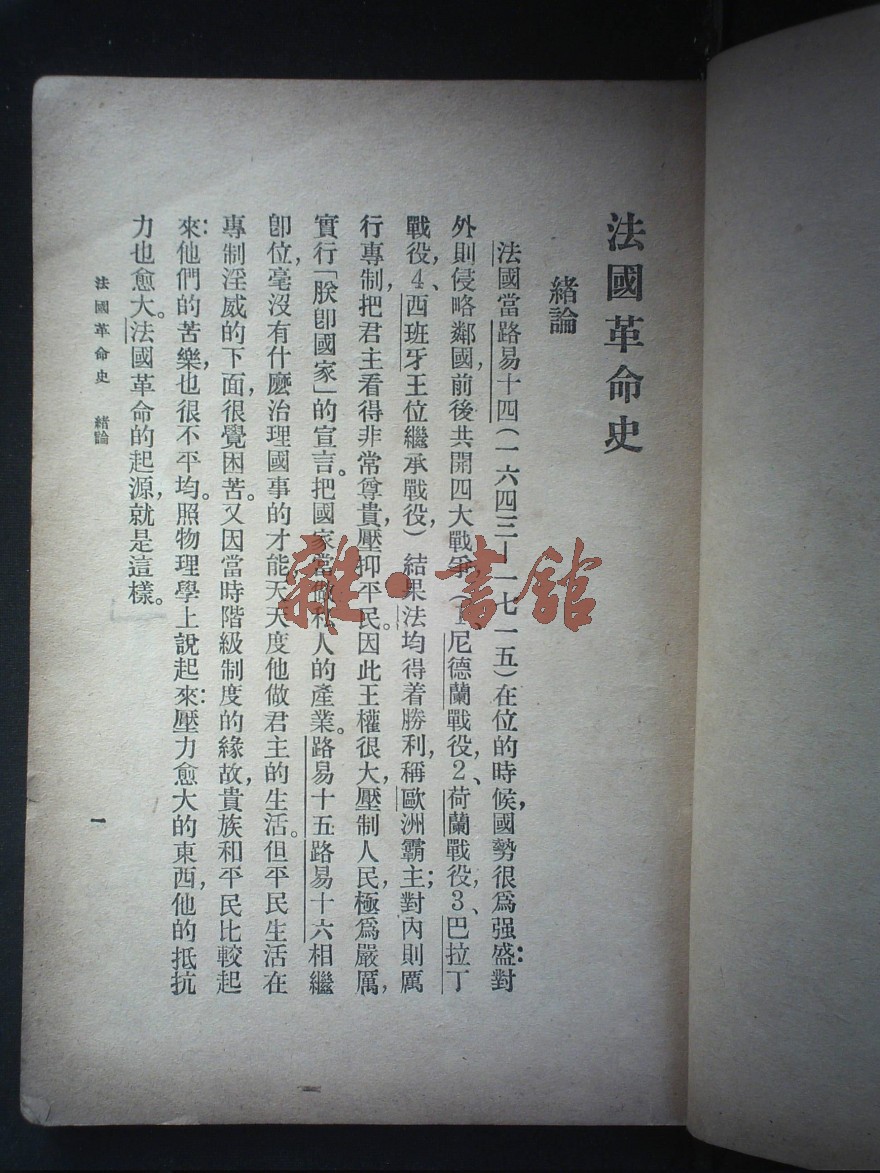 法國革命史
緒論
法國當路易十四(一六四三—一七一五)在位的時候,國勢很爲强盛:對
外則侵略鄰國,前後共開四大戰爭(1、尼德蘭戰役,2、荷蘭戰役,3、巴拉丁
戰役,4、西班牙王位繼承戰役,)結果法均得着勝利,稱歐洲霸主;對內則厲
行專制,把君主看得非常尊貴,壓抑平民。因此王權很大,壓制人民,極爲嚴厲,
實行「朕卽國家」的宣言。把國家當做私人的產業。路易十五路易十六相繼
卽位,毫沒有什麽治理國事的才能,天天度他做君主的生活。但平民生活在
專制淫威的下面,很覺困苦。又因當時階級制度的緣故,貴族和平民比較起
來:他們的苦樂,也很不平均。照物理學上說起來:壓力愈大的東西,他的抵抗
力也愈大。法國革命的起源,就是這樣。
法國革命史 緒論
一
雜·書舘